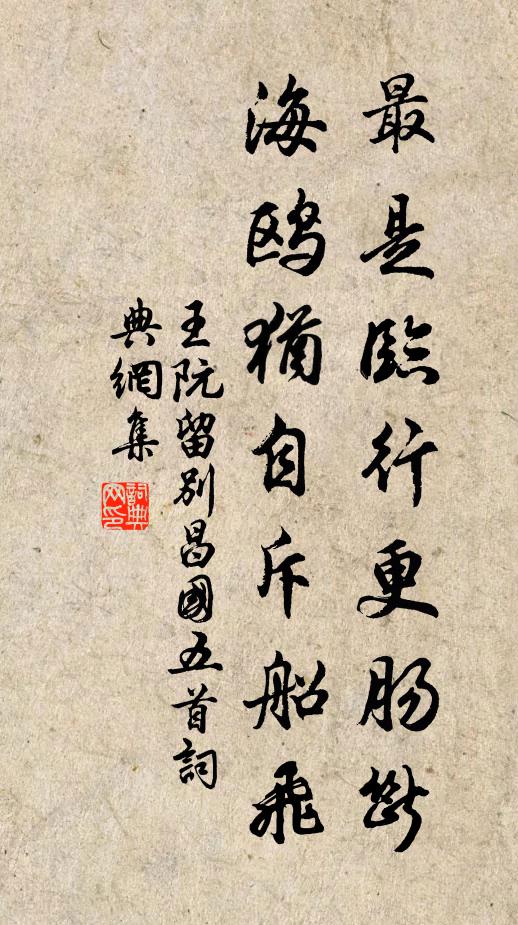 最是臨行更腸斷
海鷗猶自斥船飛
王阮留別昌國五首詞
典網集
詞典網印